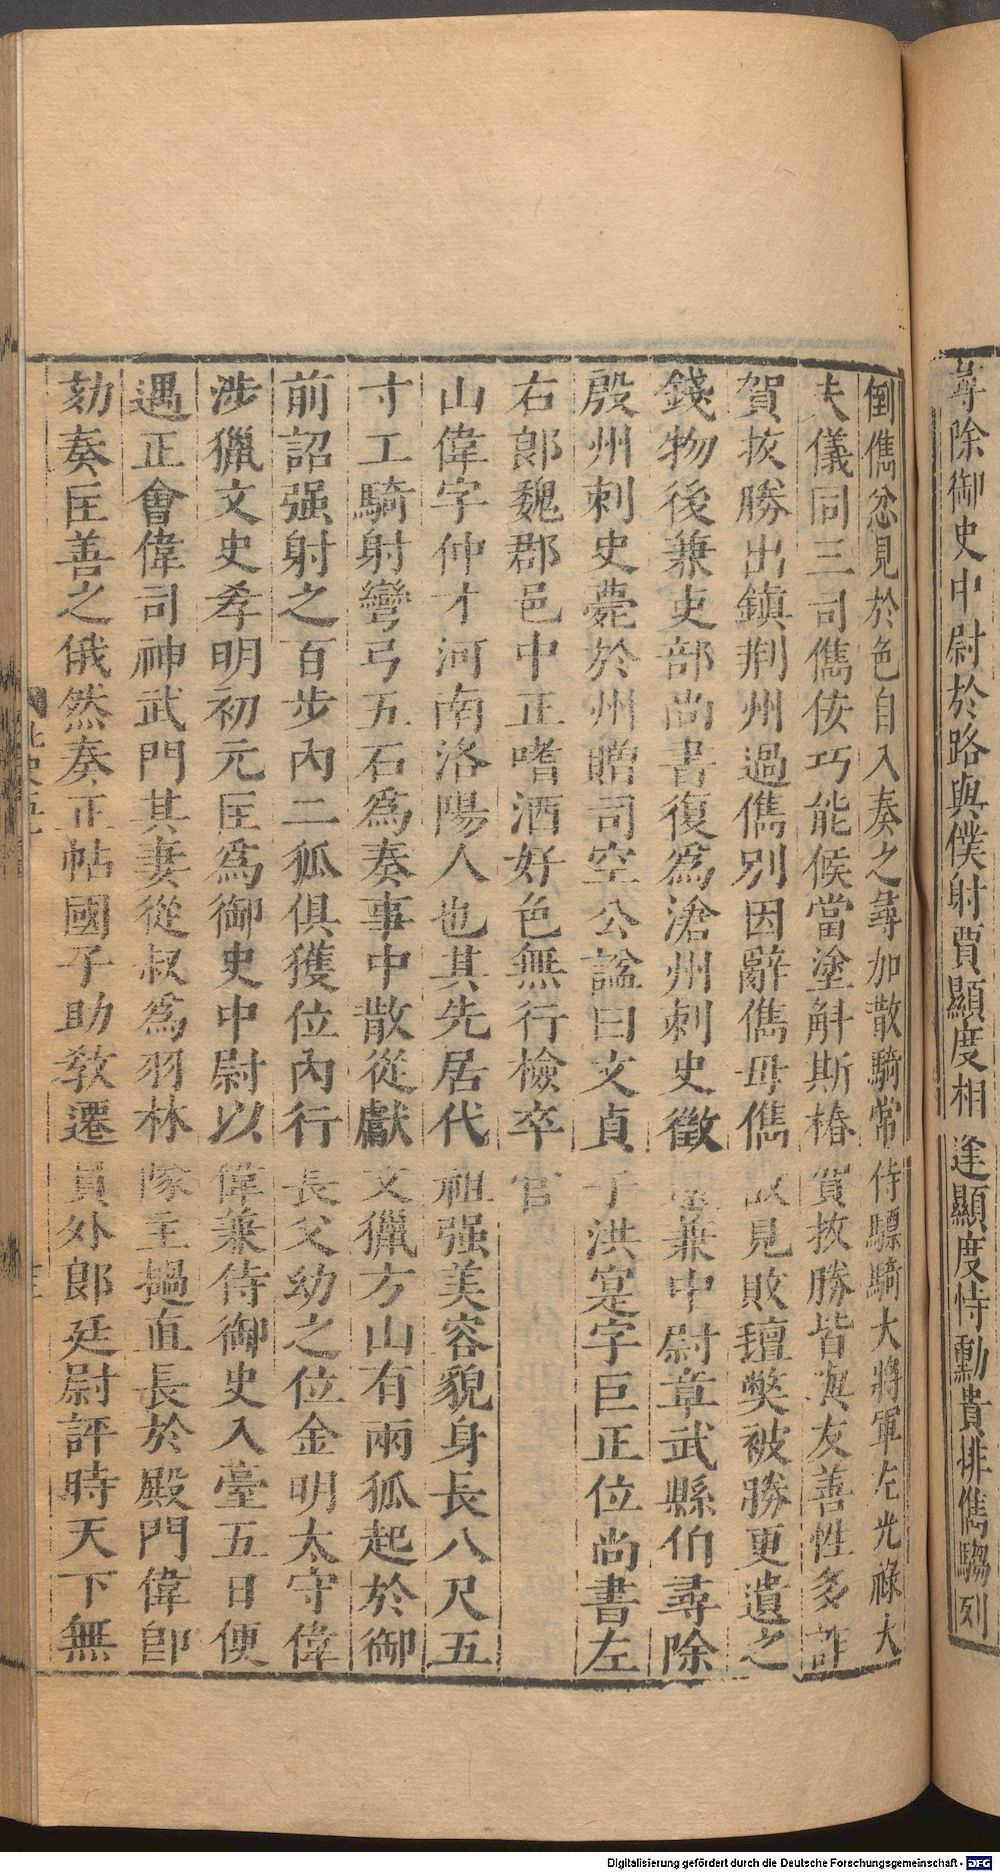 尋除御史中尉於路與僕射賈顯度相逢顯度恃勳貴排儁騶列
倒儁忿見於色自入奏之尋加散騎常侍驃騎大將軍左光祿大
夫儀同三司儁佞巧能候當塗斛斯椿賀拔勝皆與友善性多詐
賀拔勝出鎮荆州過儁別因辭儁母儁故見敗氊弊被勝更遺之
錢物後兼吏部尚書復爲滄州刺史徵還兼中尉章武縣伯尋除
殷州刺史薨於州贈司空公諡曰文貞子洪寔字巨正位尚書左
右郎魏郡邑中正嗜酒好色無行檢卒官
山偉字仲才河南洛陽人也其先居代祖强美容貌身長八尺五
寸工騎射彎弓五石爲奏事中散從獻文獵方山有兩狐起於御
前詔强射之百步內二狐俱獲位內行長父幼之位金明太守偉
涉獵文史孝明初元匡爲御史中尉以偉兼侍御史入臺五日便
遇正會偉司神武門其妻從叔爲羽林隊主撾直長於殿門偉卽
劾奏匡善之俄然奏正帖國子助敎遷員外郎廷尉評時天下無
Digitalisierung gefördert durch die Deutsche Forschungsgemeinschaft - DFG